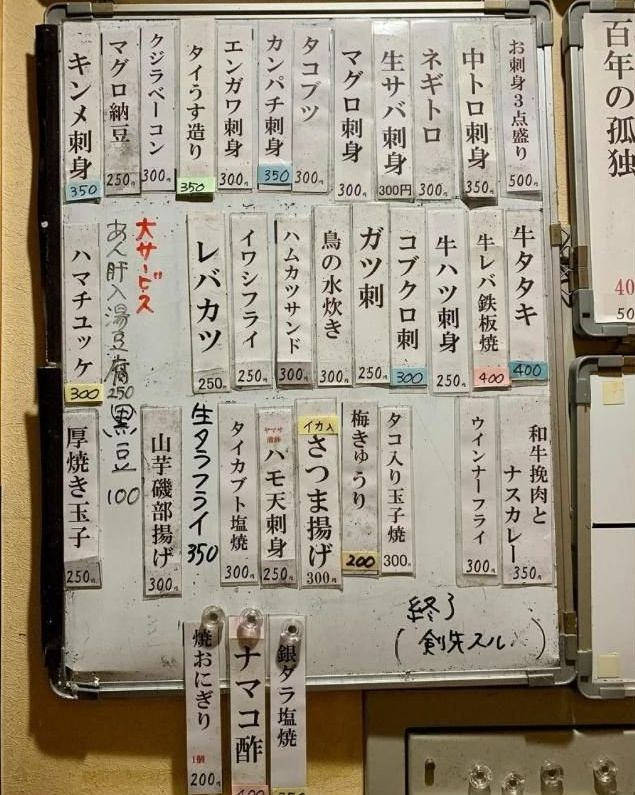 お刺身3点盛り 500円
中トロ刺身 350円
ネギトロ 300円
生サバ刺身 300円
マグロ刺身 300円
タコブツ 300円
カンパチ刺身 350
エンガワ刺身 300円
タイうす造り 350
クジラベーコン 300円
マグロ納豆 250円
キンメ刺身 350
牛タタキ 400
牛レバ鉄板焼 400
牛ハツ刺身 250円
コブクロ刺 300
ガツ刺 250円
鳥の水炊き 300円
ハムカツサンド 300円
イワシフライ 250円
レバカツ 250円
大サービス
あん肝入湯豆腐 250
ハマチユッケ 300
和牛挽肉と
ナスカレー 350円
ウインナーフライ 300円
タコ入り玉子焼 300円
梅きゅうり 200
イカ入
さつま揚げ 300円
ハモ天刺身 250円
タイカブト塩焼 300円
生タラフライ 350
山芋磯部揚げ 300円
黒豆 100
厚焼き玉子 250円
終了
(剣先スル)
銀タラ塩焼
ナマコ酢 400
焼おにぎり 1個 200円
百年の孤独
40
50